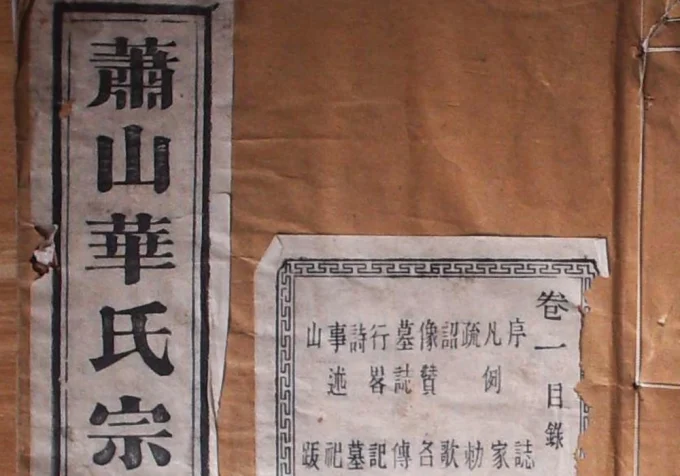 蕭山華氏宗
卷一目錄
序 誌
凡例 家
疏 勅
詔 歌
像贊 各
墓誌 傳
行畧 記
詩 墓
事述 祀
山 跋